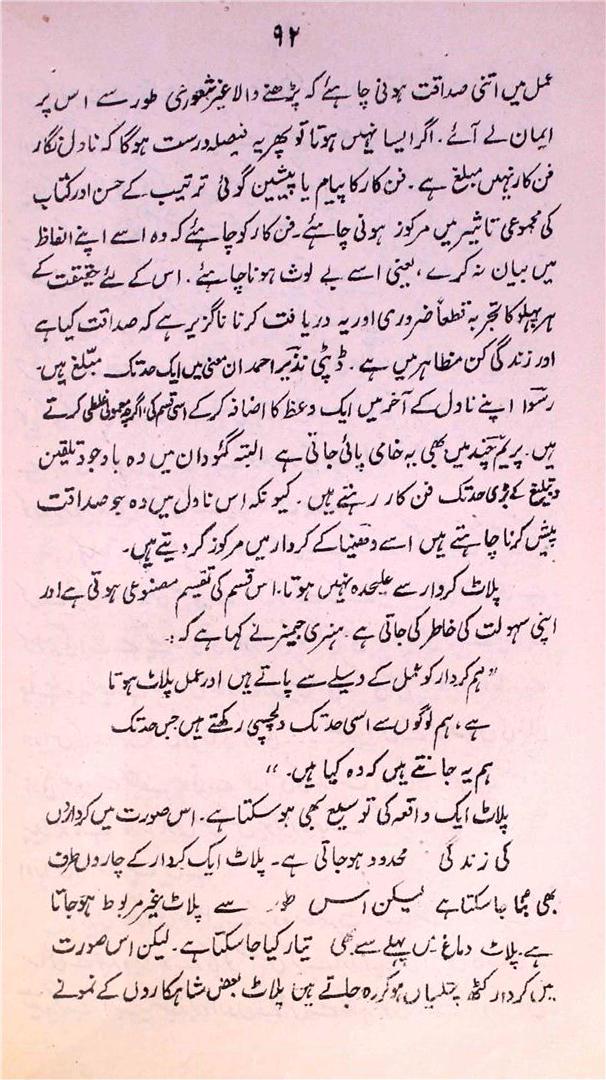 ۹۲
عمل میں اتنی صداقت ہونی چاہئے کہ پڑھنے والا غیر شعوری طور سے اس پر
ایمان لے آئے۔ اگر ایسا نہیں ہوتا تو پھر یہ فیصلہ درست ہوگا کہ ناول نگار
فن کار نہیں مبلغ ہے۔ فن کار کا پیام یا پیشین گوئی ترتیب کے حسن اور کتاب
کی مجموعی تاثیر میں مرکوز ہونی چاہئے۔ فن کار کو چاہئے کہ وہ اسے اپنے الفاظ
میں بیان نہ کرے، یعنی اسے بے لوث ہونا چاہئے۔ اس کے لئے حقیقت کے
ہر پہلو کا تجربہ قطعاً ضروری اور یہ دریافت کرنا ناگزیر ہے کہ صداقت کیا ہے
اور زندگی کن مظاہر میں ہے۔ ڈپٹی نذیر احمد ان معنی میں ایک حد تک مبلّغ ہیں۔
رسوا اپنے ناول کے آخر میں ایک وعظ کا اضافہ کر کے اسی قسم کی، اگرچہ معمولی غلطی کرتے
ہیں۔ پریم چند میں بھی یہ خامی پائی جاتی ہے البتہ گئودان میں وہ باوجود تلقین
و تبلیغ کے بڑی حد تک فن کار رہتے ہیں۔ کیونکہ اس ناول میں وہ جو صداقت
پیش کرنا چاہتے ہیں اسے دھنیا کے کردار میں مرکوز کر دیتے ہیں۔
پلاٹ کردار سے علیحدہ نہیں ہوتا۔ اس قسم کی تقسیم مصنوعی ہوتی ہے اور
اپنی سہولت کی خاطر کی جاتی ہے۔ ہنری جیمز نے کہا ہے کہ:۔
"ہم کردار کو عمل کے وسیلے سے پاتے ہیں اور عمل پلاٹ ہوتا
ہے، ہم لوگوں سے اسی حد تک دلچسپی رکھتے ہیں جس حد تک
ہم یہ جانتے ہیں کہ وہ کیا ہیں۔"
پلاٹ ایک واقعہ کی توسیع بھی ہو سکتا ہے۔ اس صورت میں کرداروں
کی زندگی محدود ہو جاتی ہے۔ پلاٹ ایک کردار کے چاروں طرف
بھی بُنا جا سکتا ہے لیکن اس طور سے پلاٹ غیر مربوط ہو جاتا
ہے۔ پلاٹ دماغ میں پہلے سے بھی تیار کیا جا سکتا ہے۔ لیکن اس صورت
میں کردار کٹھ پتلیاں ہو کر رہ جاتے ہیں پلاٹ بعض شاہکاروں کے نمونے